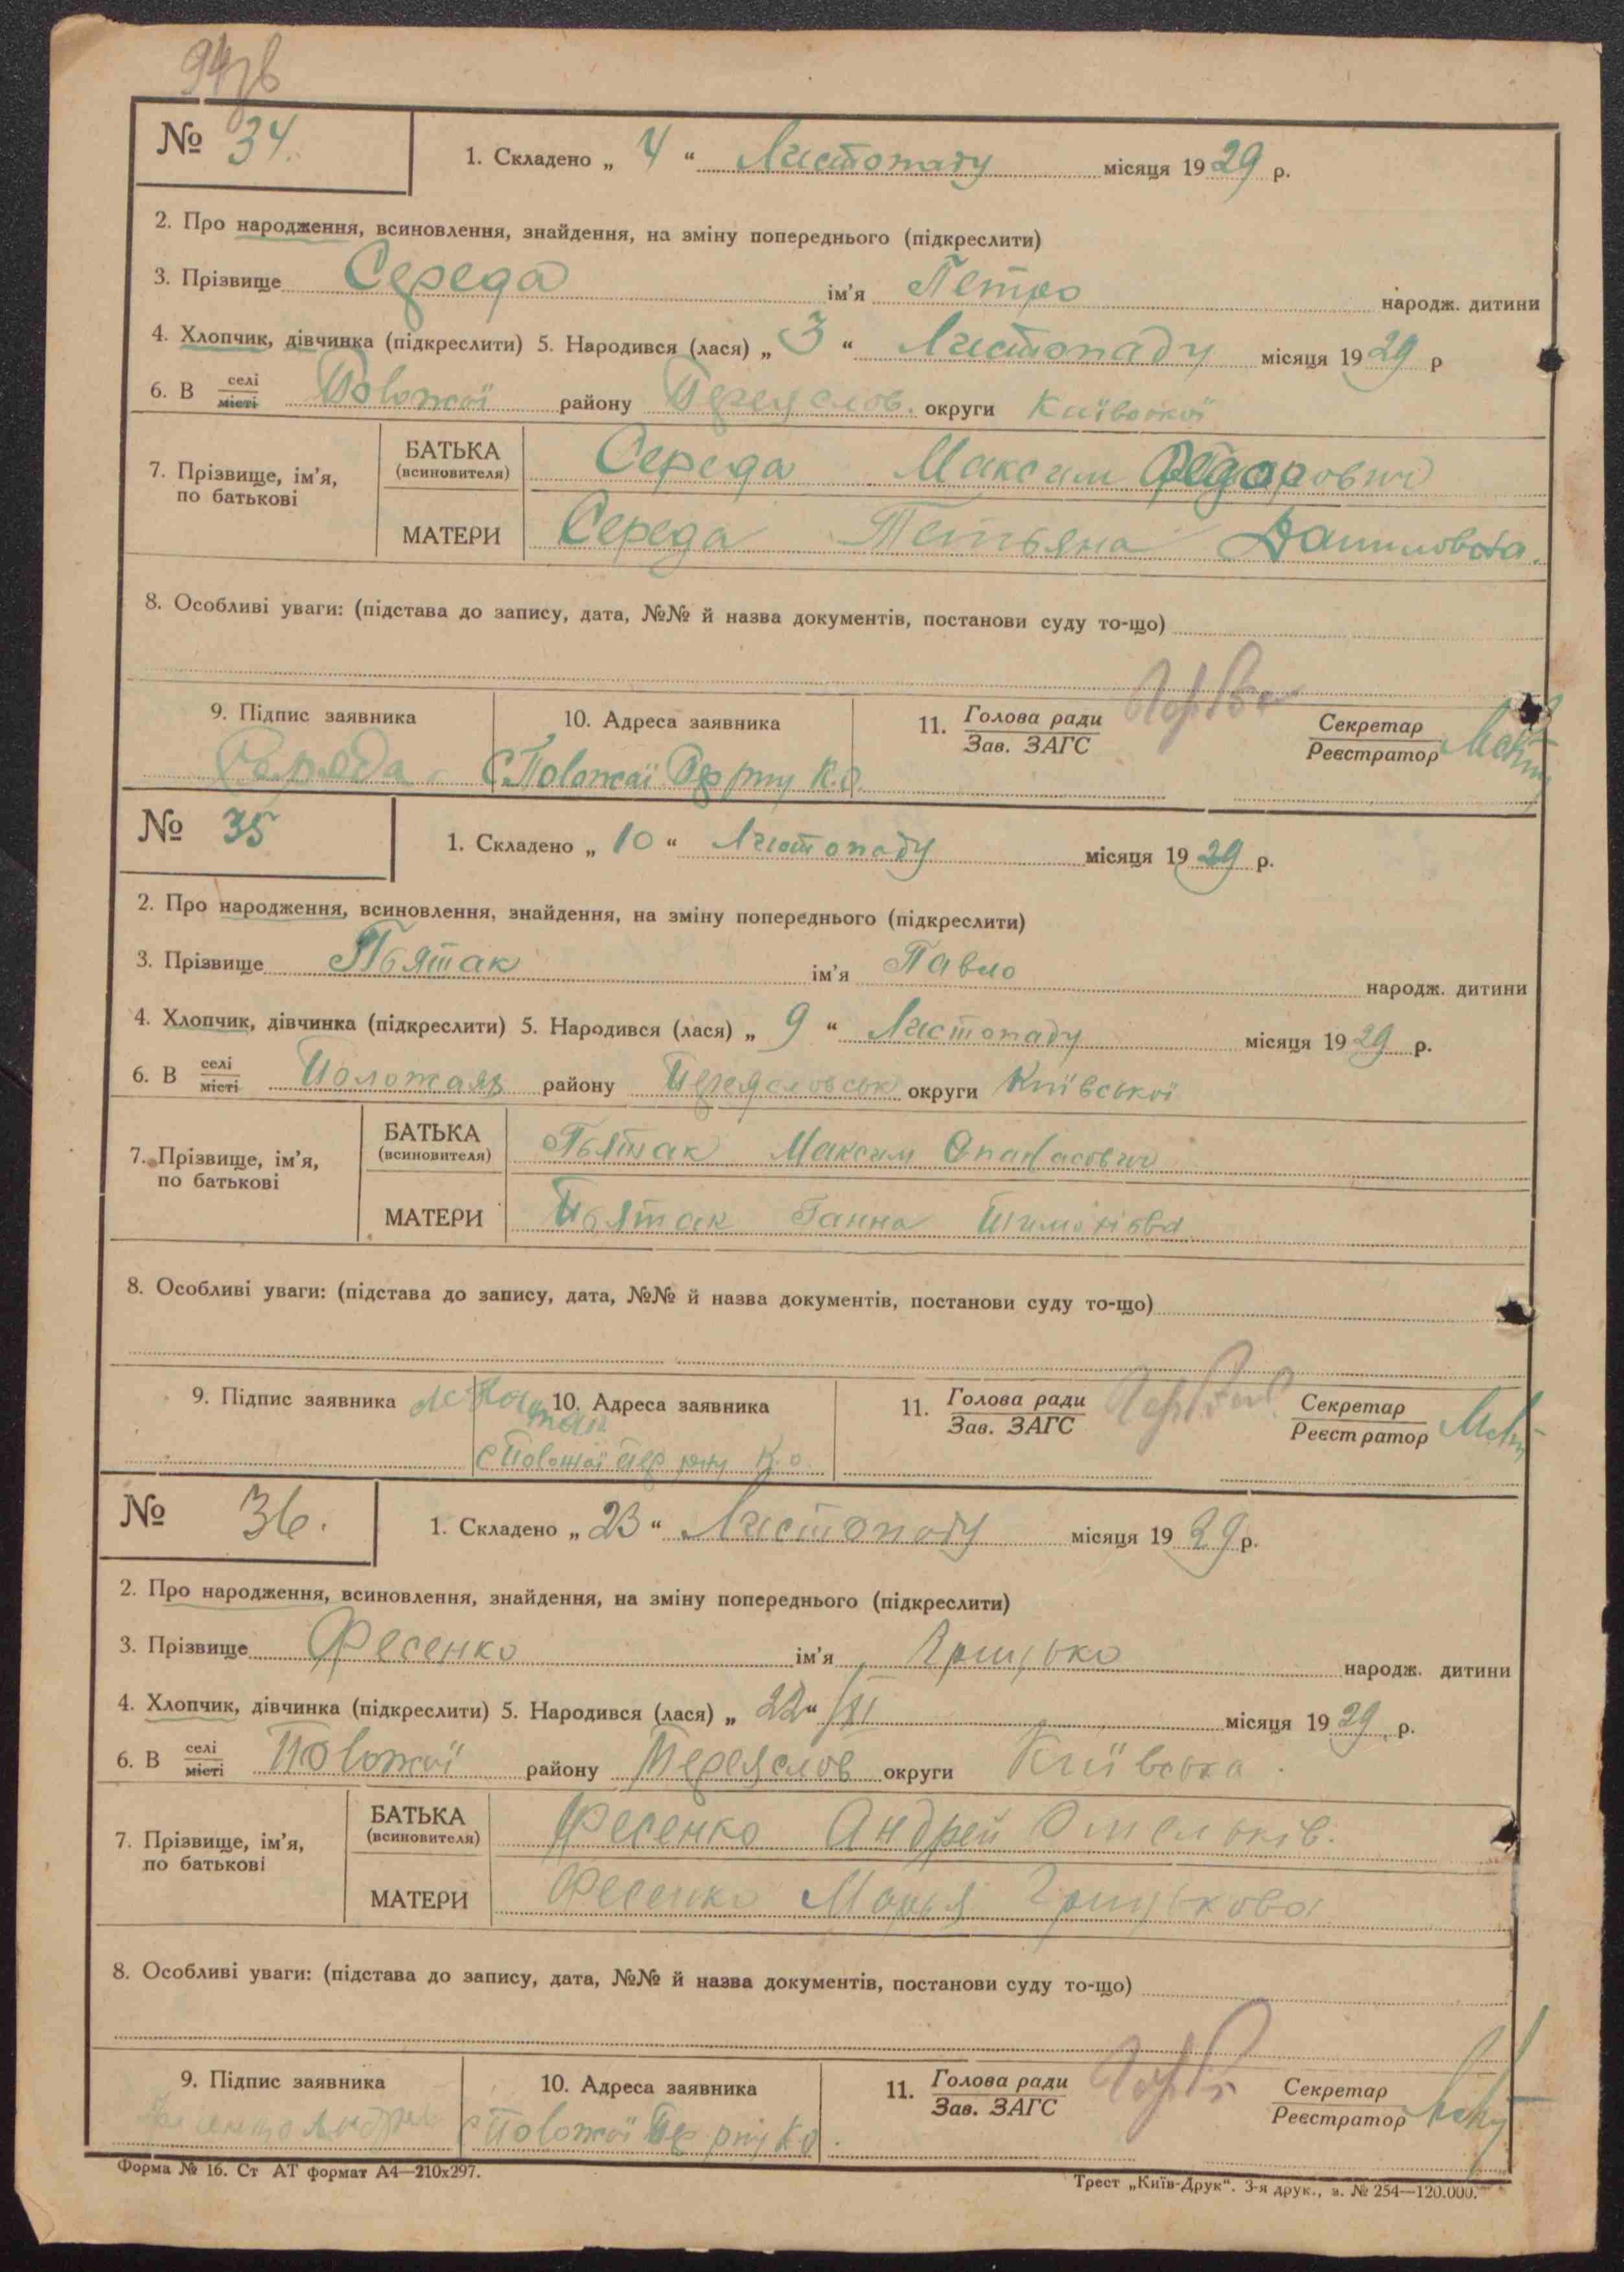 94зв
№ 34.
1. Складено „ 4 “ Листопаду місяця 1929 р.
2. Про народження, всиновлення, знайдення, на зміну попереднього (підкреслити)
3. Прізвище Середа ім'я Петро народж. дитини
4. Хлопчик, дівчинка (підкреслити) 5. Народився (лася) „ 3 “ Листопаду місяця 1929 р
6. В селі/місті Положаї району Переяслов. округи Київської
7. Прізвище, ім'я, по батькові
БАТЬКА (всиновителя) Середа Максим Федорович
МАТЕРИ Середа Тетьяна Даниловова.
8. Особливі уваги: (підстава до запису, дата, №№ й назва документів, постанови суду то-що)
9. Підпис заявника 10. Адреса заявника 11. Голова ради/Зав. ЗАГС Секретар/Реєстратор
Середа С Положаї Пер рну К.О.
№ 35
1. Складено „ 10 “ Листопаду місяця 1929 р.
2. Про народження, всиновлення, знайдення, на зміну попереднього (підкреслити)
3. Прізвище Пьятак ім'я Павло народж. дитини
4. Хлопчик, дівчинка (підкреслити) 5. Народився (лася) „ 9 “ Листопаду місяця 1929 р.
6. В селі/місті Положаях району Переясловськ округи Київської
7. Прізвище, ім'я, по батькові
БАТЬКА (всиновителя) Пьятак Максим Опанасович
МАТЕРИ Пьятак Ганна
8. Особливі уваги: (підстава до запису, дата, №№ й назва документів, постанови суду то-що)
9. Підпис заявника 10. Адреса заявника 11. Голова ради/Зав. ЗАГС Секретар/Реєстратор
С Положаї Пер рну К.О
№ 36.
1. Складено „ 23 “ Листопаду місяця 1929 р.
2. Про народження, всиновлення, знайдення, на зміну попереднього (підкреслити)
3. Прізвище Фесенко ім'я Грицько народж. дитини
4. Хлопчик, дівчинка (підкреслити) 5. Народився (лася) „ 22 “ /XI місяця 1929 р.
6. В селі/місті Положаї району Переяслов округи Київська.
7. Прізвище, ім'я, по батькові
БАТЬКА (всиновителя) Фесенко Андрей Омельків.
МАТЕРИ Фесенко Марья Грицькова
8. Особливі уваги: (підстава до запису, дата, №№ й назва документів, постанови суду то-що)
9. Підпис заявника 10. Адреса заявника 11. Голова ради/Зав. ЗАГС Секретар/Реєстратор
С Положаї Пер рну К.О.
Форма № 16. Ст АТ формат А4—210х297.
Трест „Київ-Друк“. 3-я друк., з. № 254—120.000.